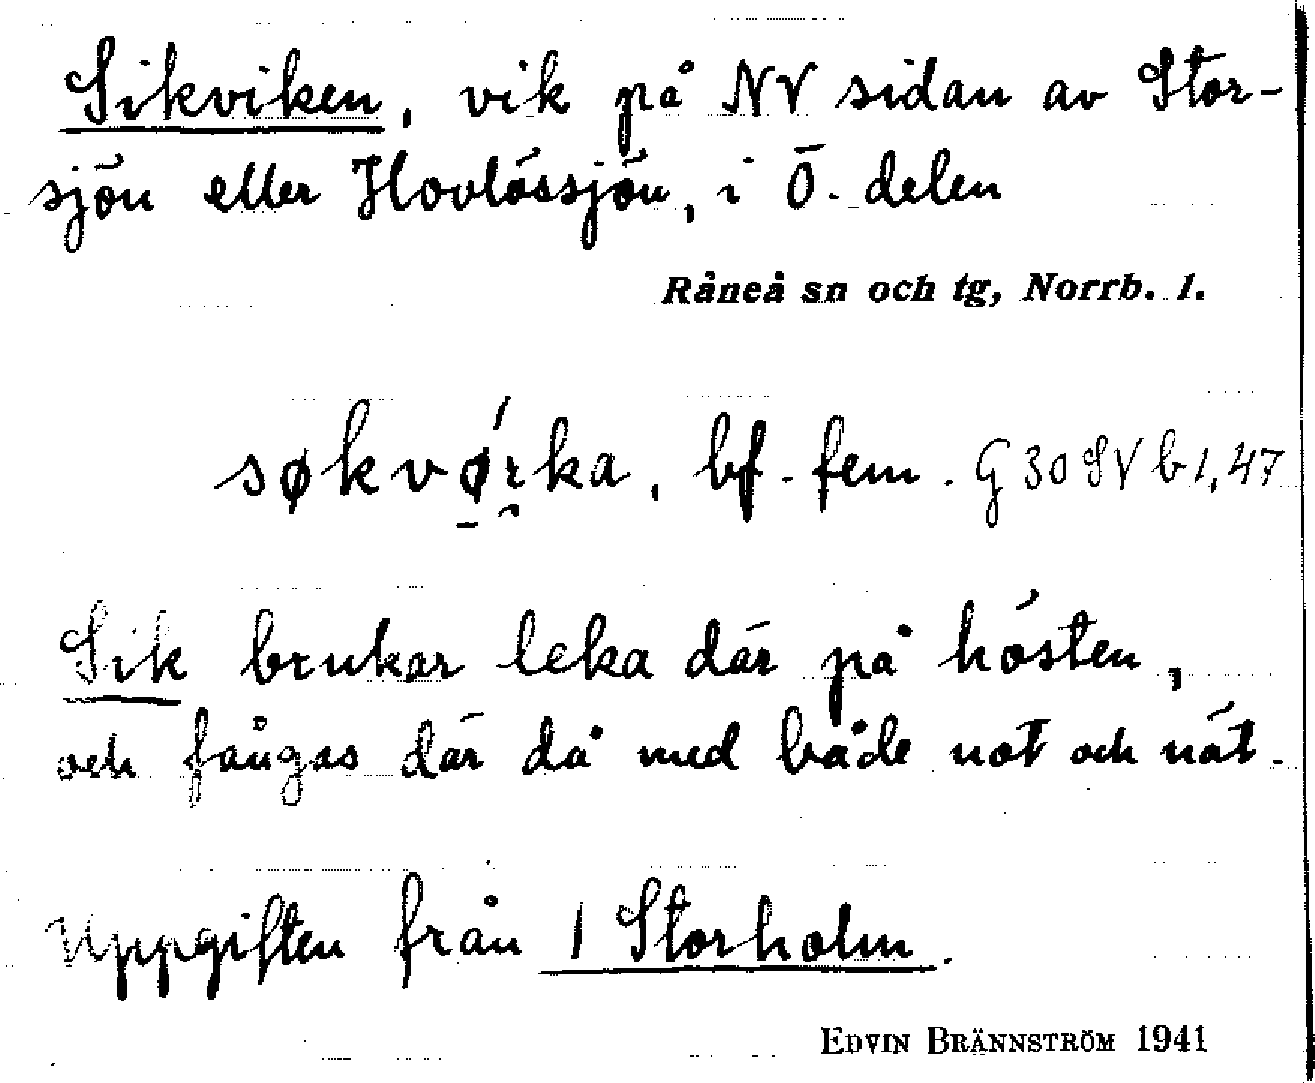 Sikviken, vik på NV sidan av Stor-
sjön eller Hovlössjön, i Ö. delen
Råneå sn och tg, Norrb. l.
søkvǿrka, bf. fem. G 30 SV b 1, 47
Sik brukar leka där på hösten,
och fångas där då med både not och nät.
Uppgiften från 1 Storholm.
EDVIN BRÄNNSTRÖM 1941